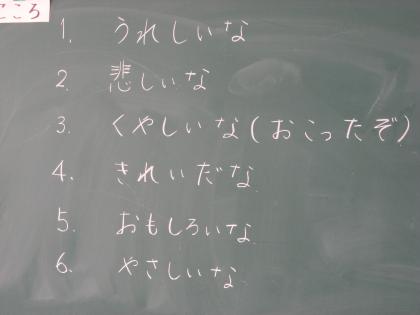 こころ
1. うれしいな
2. 悲しいな
3. くやしいな(おこったぞ)
4. きれいだな
5. おもしろいな
6. やさしいな